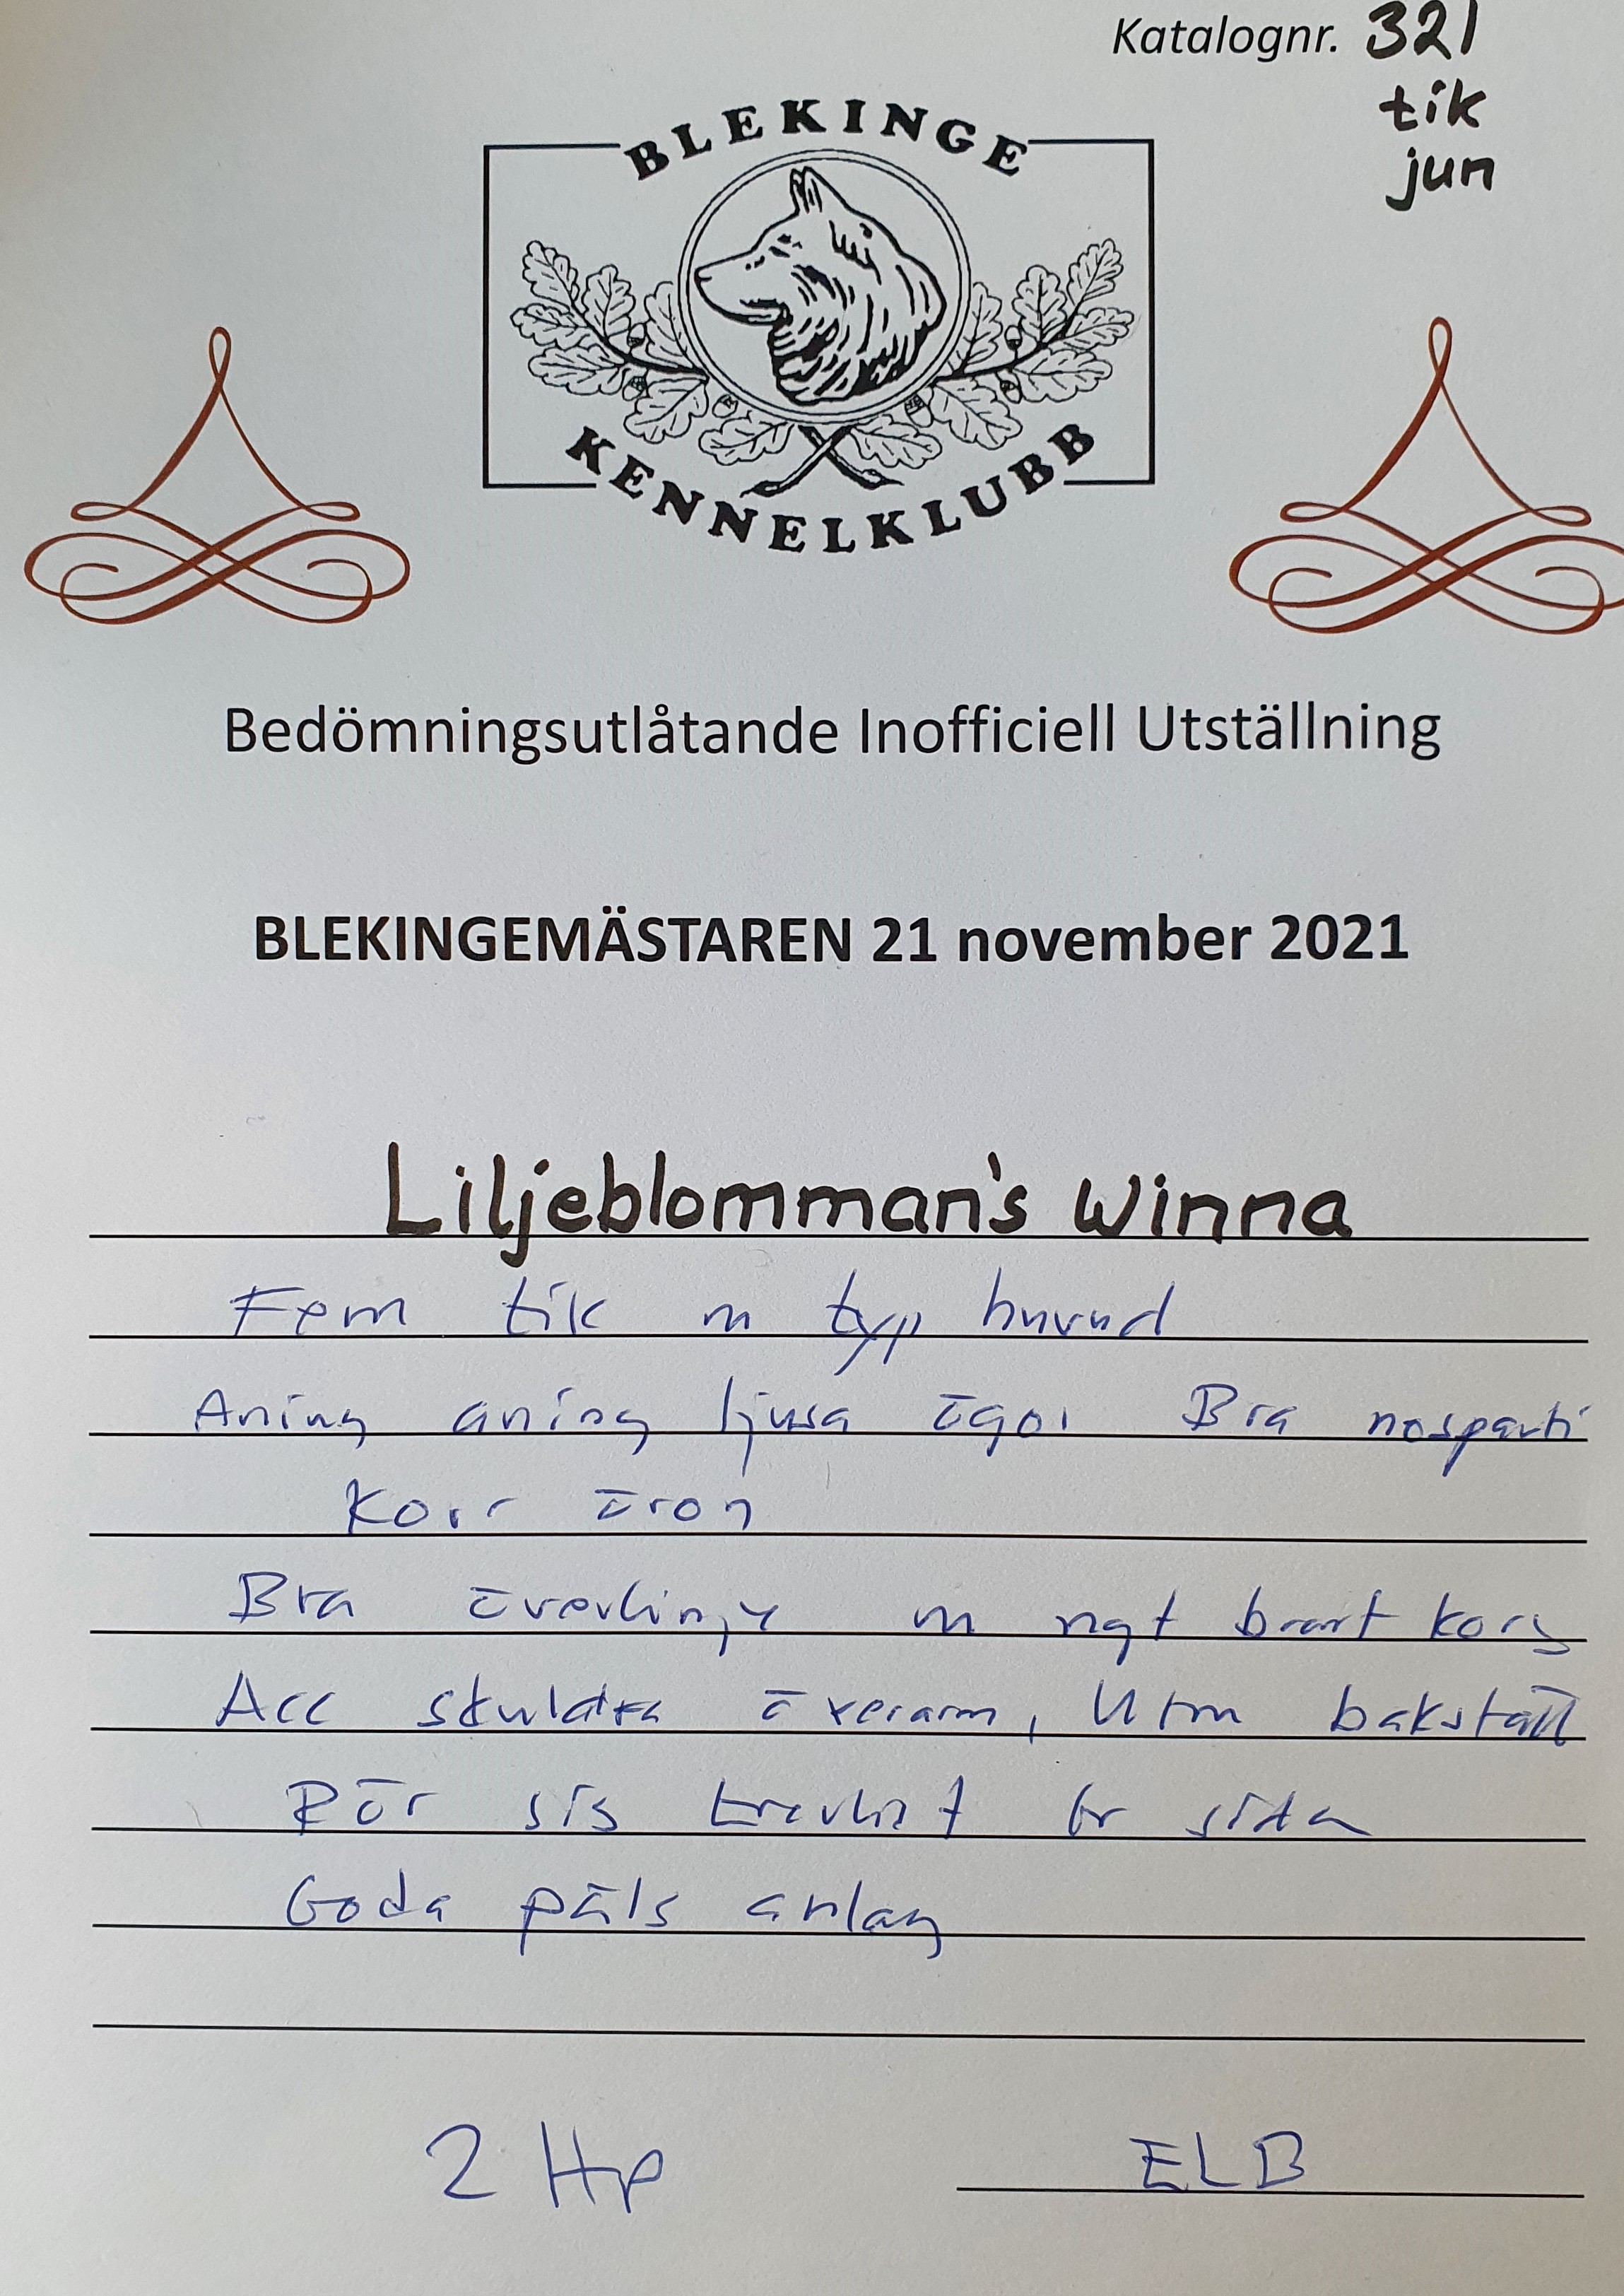 Katalognr. 321
tik
jun
BLEKINGE
KENNELKLUBB
Bedömningsutlåtande Inofficiell Utställning
BLEKINGEMÄSTAREN 21 november 2021
Liljeblomman's Winna
Fem tik m typ huvud
Aning aning ljusa ögon Bra nosparti
Korr öron
Bra överlinje m ngt brant kors
Acc skuldra överarm, Utm bakställ
Rör sig trevligt fr sida
Goda päls anlag
2 Hp
ELB